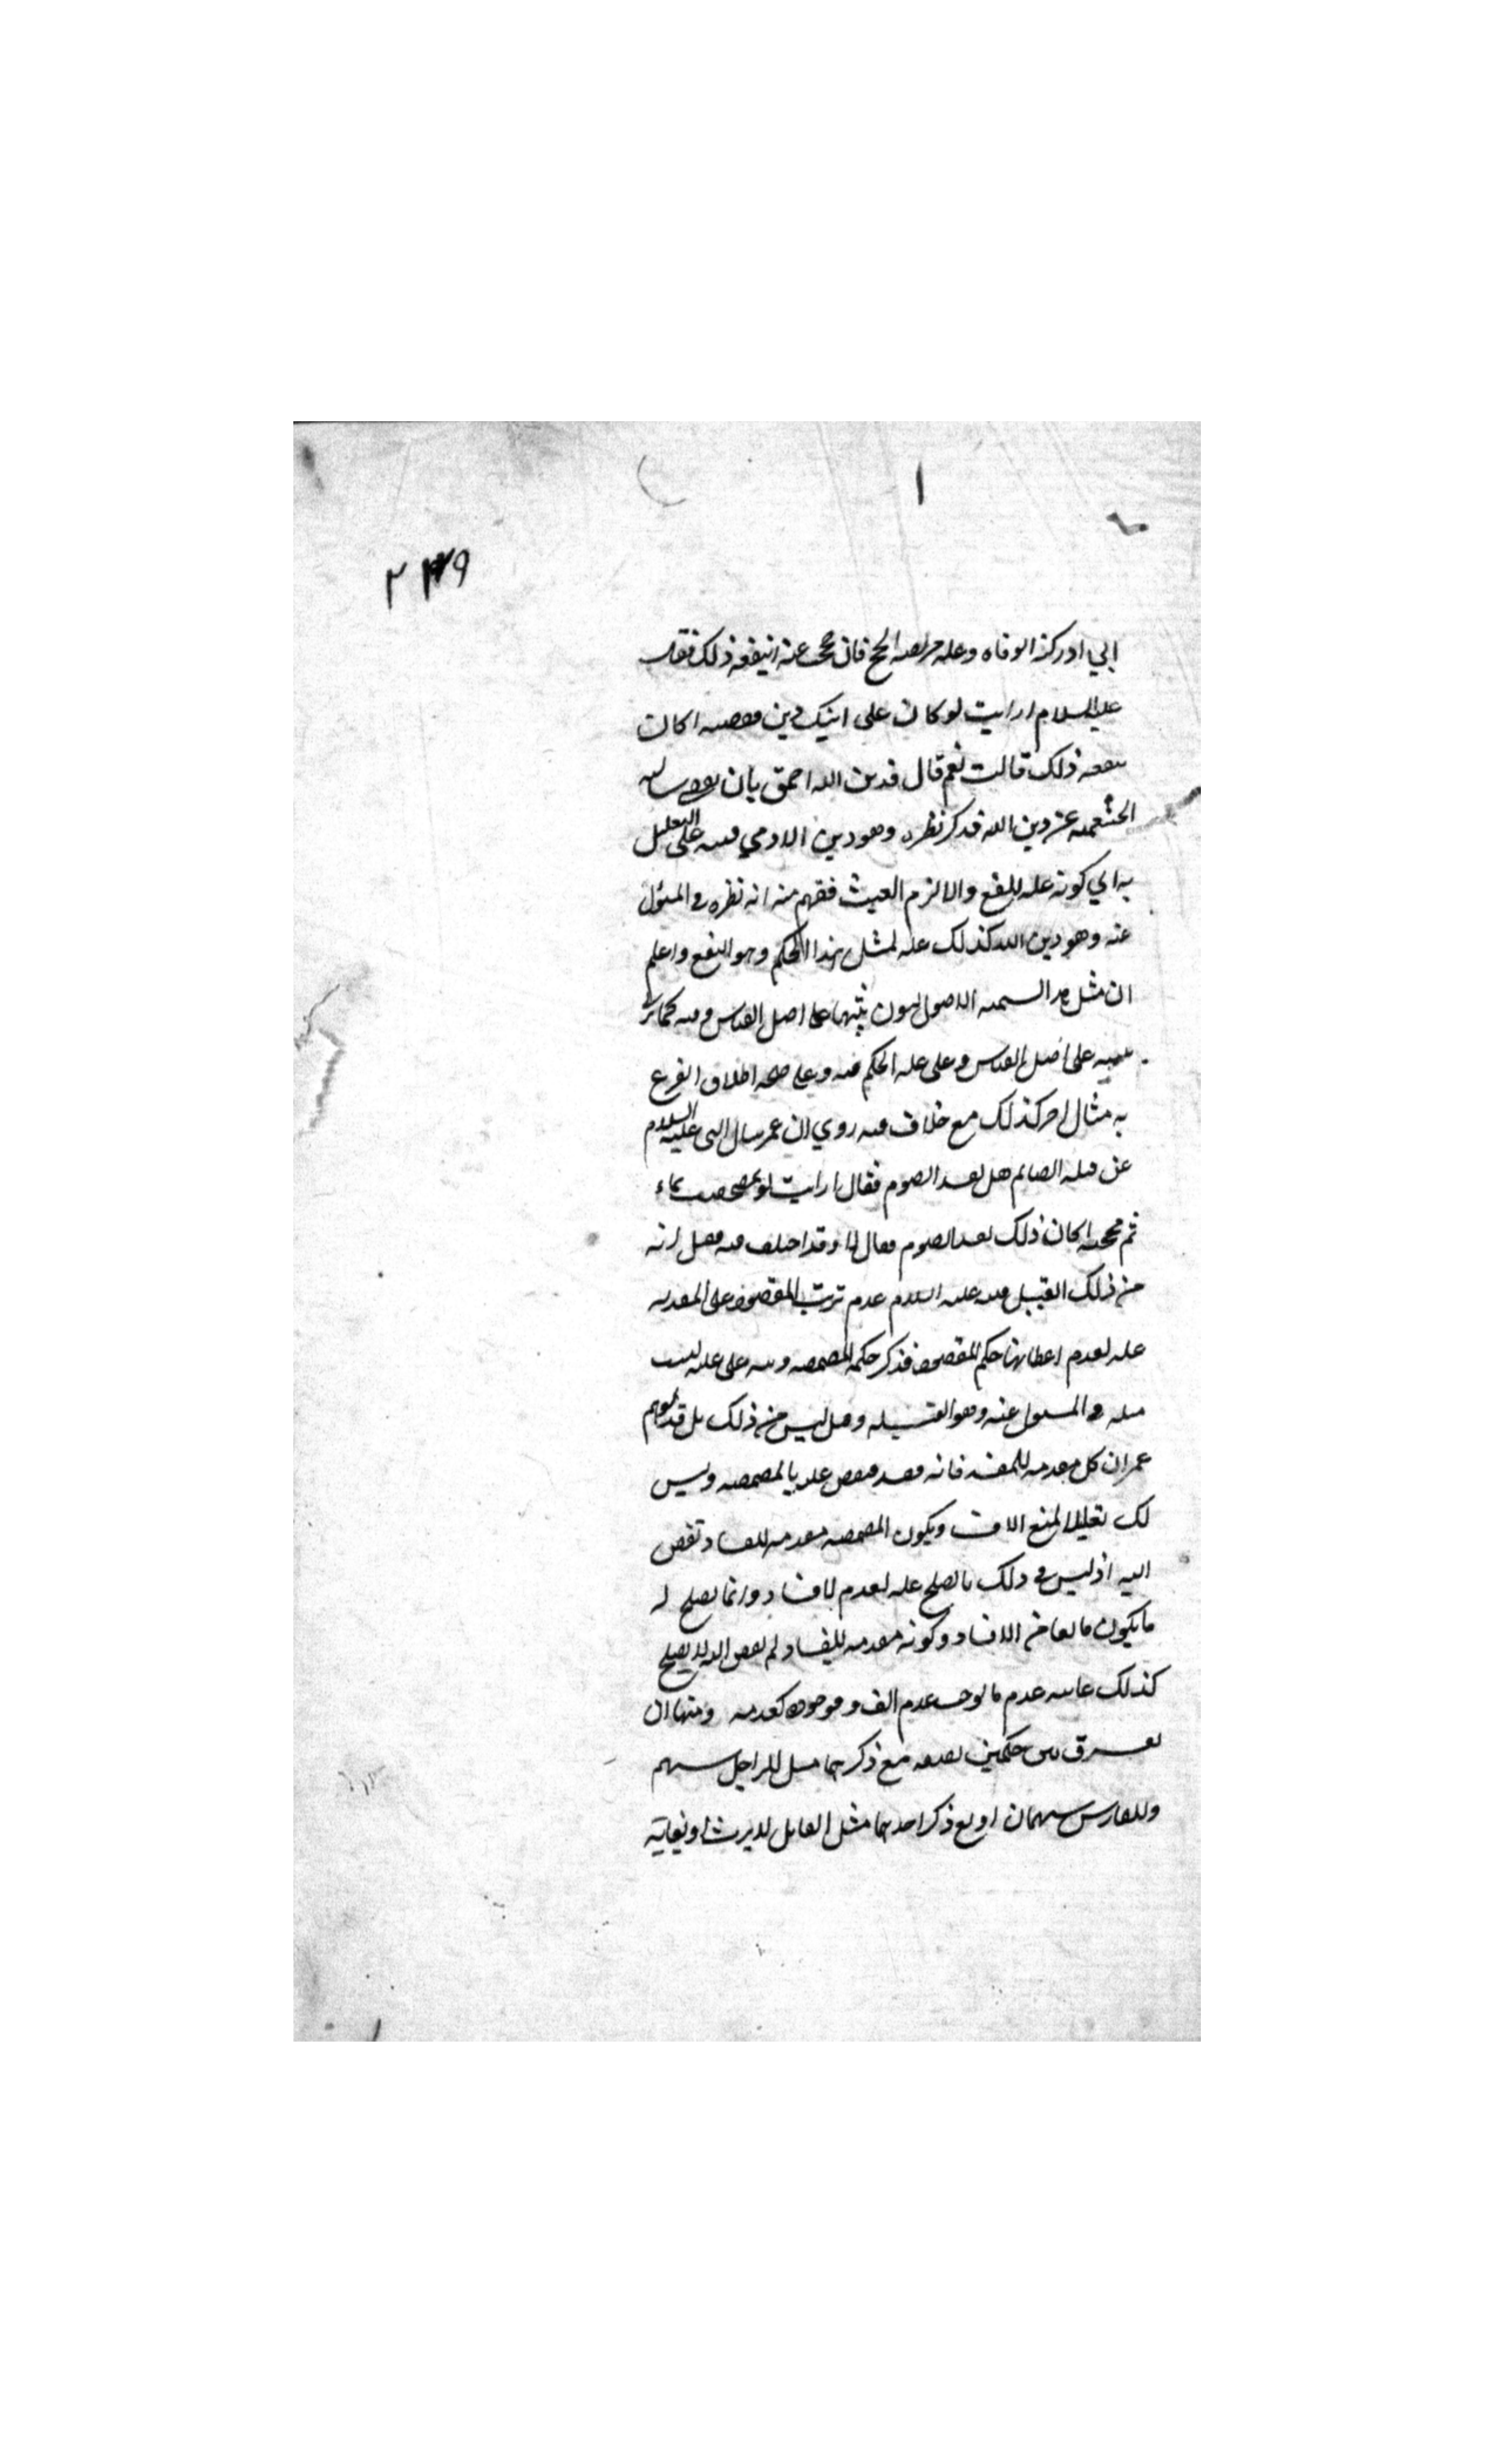 ١
٢٣٩
ابي ادركته الوفاه وعليه فريضه الحج فان حججت عنه اينفعه ذلك فقال
عليه السلام ارايت لو كان على ابيك دين فقضيته اكان
ينفعه ذلك قالت نعم قال فدين الله احق بان يقضى سالته
الخثعميه عن دين الله فذكر نظيره وهو دين الادمي فنبه على التعليل
به اي كونه عله للنفع والا لزم العبث ففهم منه ان نظيره في المسئول
عنه وهو دين الله كذلك عله لمثل هذا الحكم وهو النفع واعلم
ان مثل هذا يسميه الاصوليون تنبيها على اصل القياس وفيه كما ترى
تنبيه على اصل القياس وعلى عله الحكم فيه وعلى صحه الحاق الفرع
به مثال اخر كذلك مع خلاف فيه روي ان عمر سال النبي عليه السلام
عن قبله الصائم هل تفسد الصوم فقال ارايت لو تمضمضت بماء
ثم مججته اكان ذلك يفسد الصوم فقال لا وقد اختلف فيه فقيل انه
من ذلك القبيل نبه عليه السلام عدم ترتب المقصود على المقدمه
عله لعدم اعطائها حكم المقصود فذكر حكم المضمضه ونبه على علته ليثبت
مثله في المسئول عنه وهو القبله وقيل ليس من ذلك بل قد توهم
عمر ان كل مقدمه للمفسد فانه مفسد فنقض عليه بالمضمضه وليس
ذلك تعليلا لمنع الافساد ويكون المضمضه مقدمه للفساد تفضي
اليه اذ ليس في ذلك ما يصلح عله لعدم الافساد وانما يصلح له
ما يكون مانعا من الافساد وكونه مقدمه للفساد لم يفض اليه لا يصلح
كذلك غايته عدم ما يوجب عدم الفساد ووجوده كعدمه ومنها ان
يفرق بين حكمين بصفه مع ذكرهما مثل للراجل سهم
وللفارس سهمان او مع ذكر احدهما مثل القاتل لا يرث او بغايه